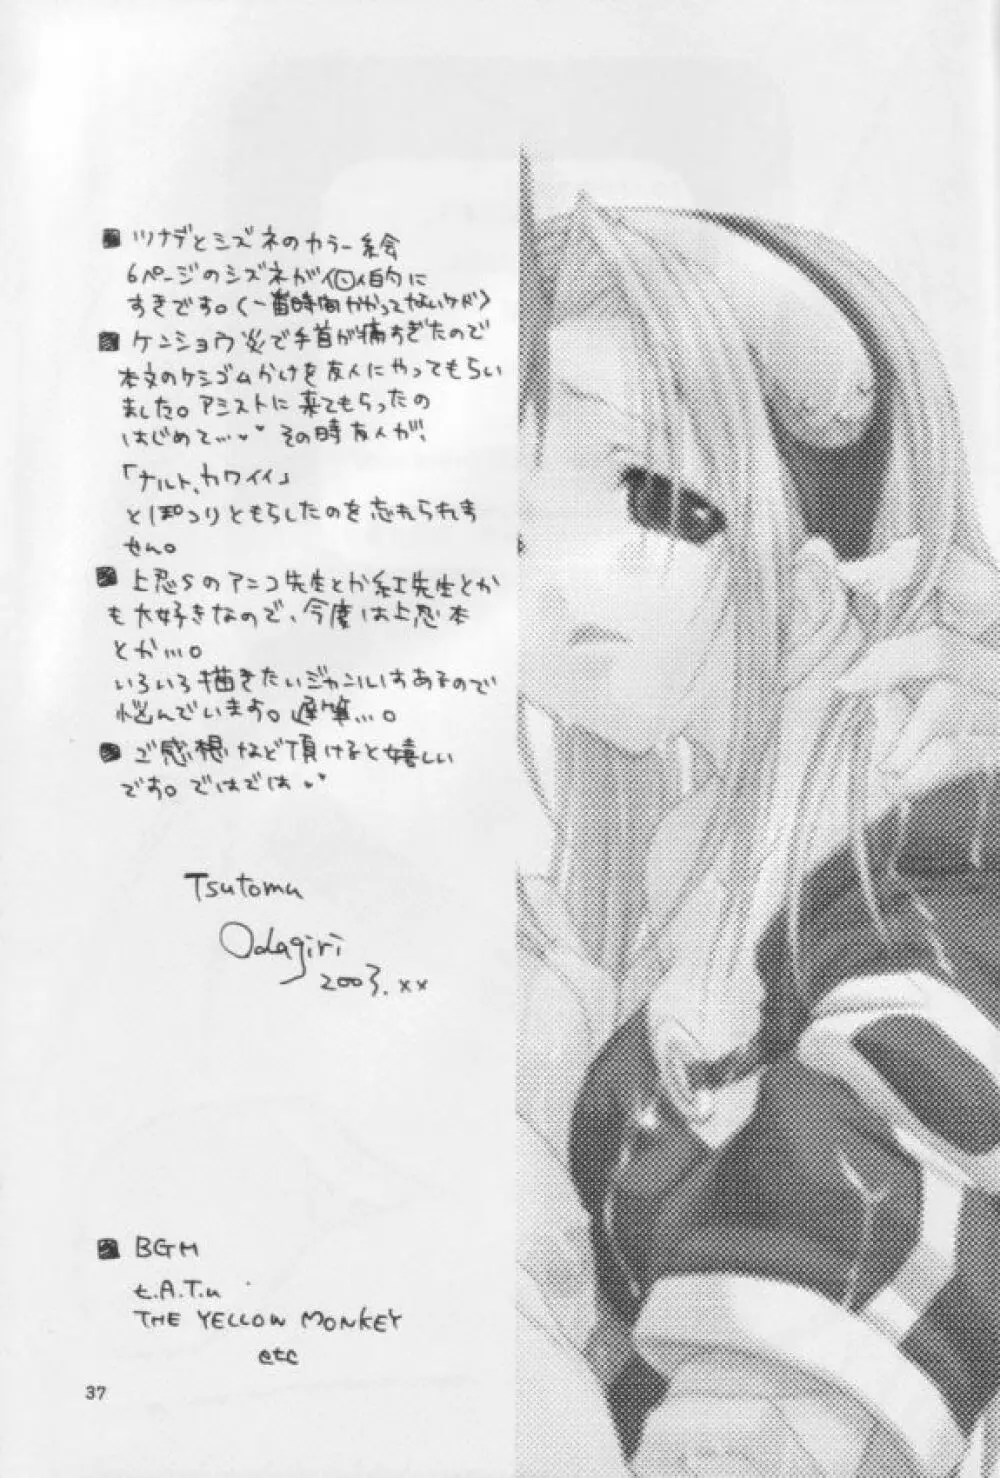 ■ ツナデとシズネのカラー絵
6ページのシズネが個人的に
すきです。(一番時間かかってないケド)
■ ケンショウ炎で手首が痛すぎたので
本文のケシゴムかけを友人にやってもらい
ました。アシストに来てもらったの
はじめて…♥♥ その時友人が、
「ナルト、カワイイ」
とぽつりともらしたのを忘れられま
せん。
■ 上忍sのアンコ先生とか紅先生とか
も大好きなので、今度は上忍本
とか…。
いろいろ描きたいジャンルはあるので
悩んでいます。遅筆…。
■ ご感想など頂けると嬉しい
です。ではでは♥♥
Tsutomu
Odagiri
2003.××
■ BGM
t.A.T.u
THE YELLOW MONKEY
etc
37